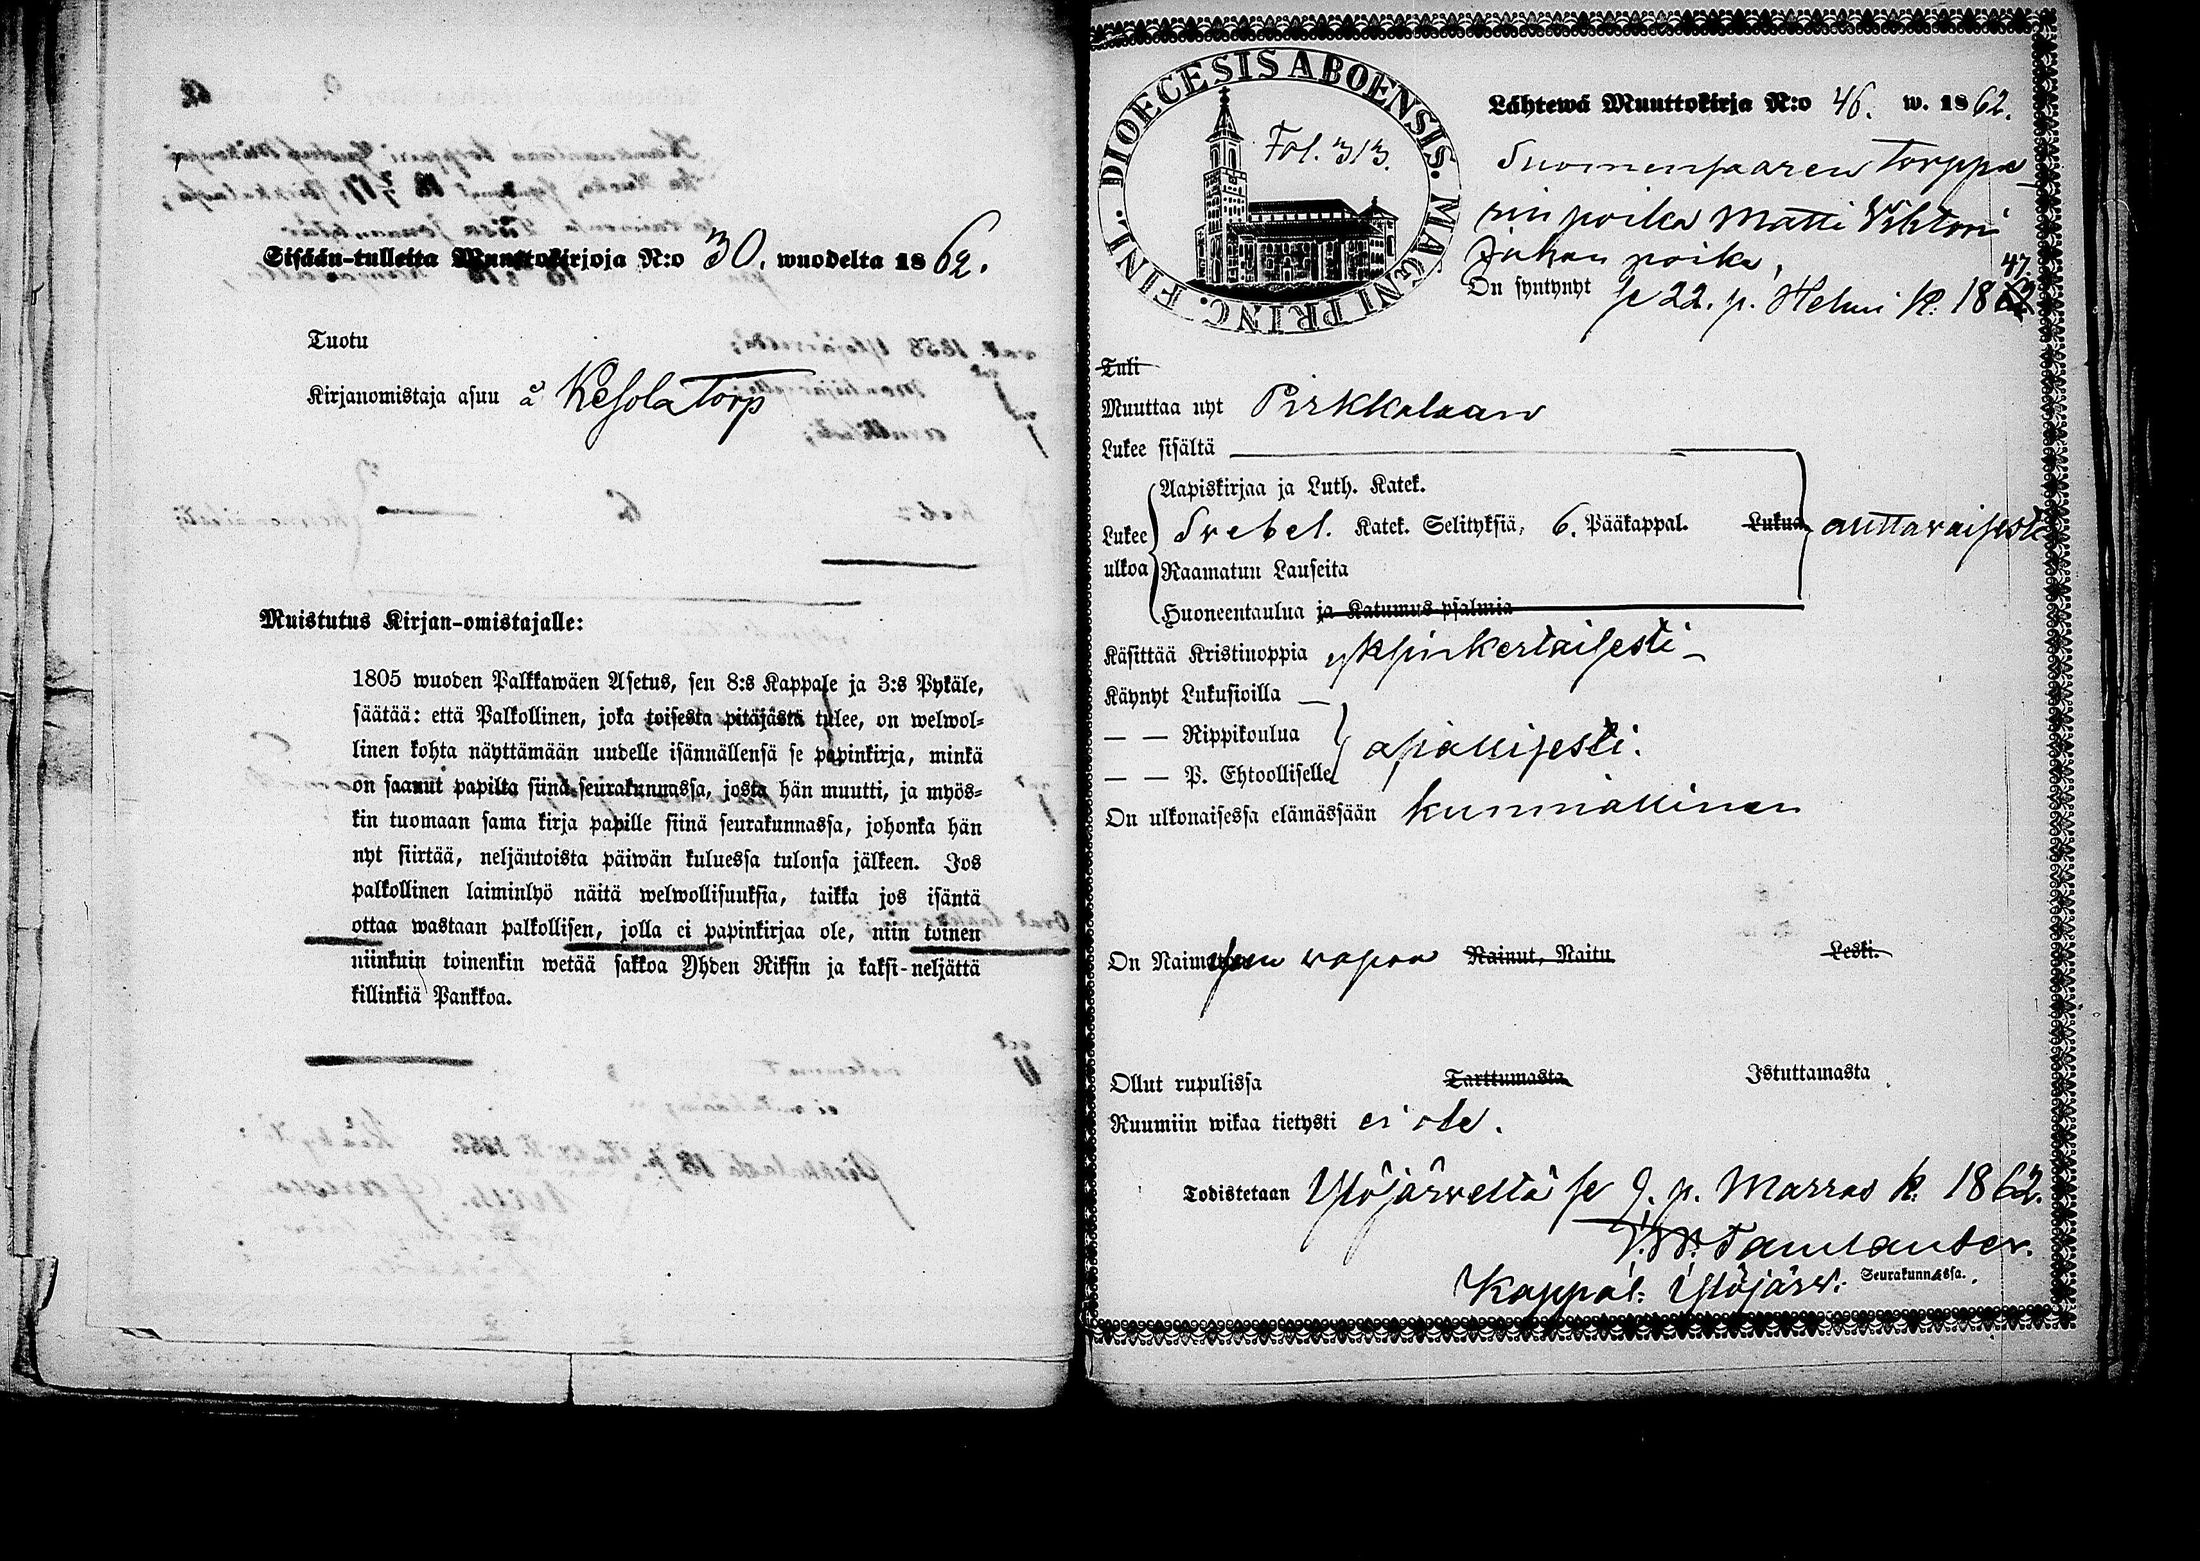 Sisään-tulleita Muuttokirjoja N:o 30. wuodelta 1862.
Tuotu
Kirjanomistaja asuu å Kesola Torp
Muistutus Kirjan-omistajalle:
1805 wuoden Palkkawäen Asetus, sen 8:s Kappale ja 3:s Pykäle,
säätää: että Palkollinen, joka toisesta pitäjästä tulee, on welwol-
linen kohta näyttämään uudelle isännällensä se papinkirja, minkä
on saanut papilta siinä seurakunnassa, josta hän muutti, ja myös-
kin tuomaan sama kirja papille siinä seurakunnassa, johonka hän
nyt siirtää, neljäntoista päiwän kuluessa tulonsa jälkeen. Jos
palkollinen laiminlyö näitä welwollisuuksia, taikka jos isäntä
ottaa wastaan palkollisen, jolla ei papinkirjaa ole, niin toinen
niinkuin toinenkin wetää sakkoa Yhden Riksin ja kaksi-neljättä
killinkiä Pankkoa.
FINL. DIOECESIS ABOENSIS. MAGNI PRINC.
Fol. 313.
Lähtewä Muuttokirja N:o 46. w. 1862.
Suomensaaren Torppa
rin poika Matti Vihtori
Juhan poika,
47.
On syntynyt se 22. p. Helmi k. 18
Tuli
Muuttaa nyt Pirkkalaan
Lukee sisältä
Aapiskirjaa ja Luth. Katek.
Lukee Svebel. Katek. Selityksiä, 6. Pääkappal. Lukua auttavaisesti
ulkoa Raamatun Lauseita
Huoneentaulua ja Katumus-psalmia
Käsittää Kristinoppia yksinkertaisesti
Käynyt Lukusioilla
— — Rippikoulua
— — P. Ehtoolliselle asiallisesti.
On ulkonaisessa elämässään kunniallinen
On Naimiseen vapaa Nainut, Naitu Leski.
Ollut rupulissa Tarttumasta Istuttamasta
Ruumiin wikaa tietysti ei ole.
Todistetaan Ylöjärveltä se 9. p. Marras k. 1862.
Tamlander.
Kappal. Ylöjärv. Seurakunnassa.